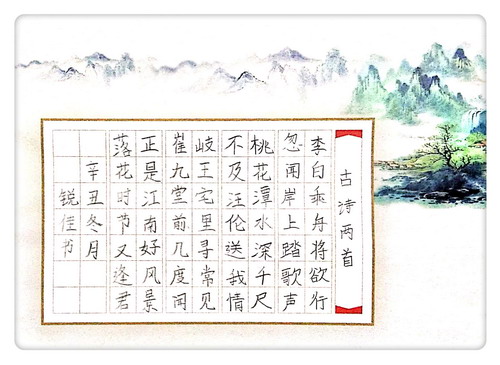 古诗两首
李白乘舟将欲行
忽闻岸上踏歌声
桃花潭水深千尺
不及汪伦送我情
岐王宅里寻常见
崔九堂前几度闻
正是江南好风景
落花时节又逢君
辛丑冬月
锐佳书